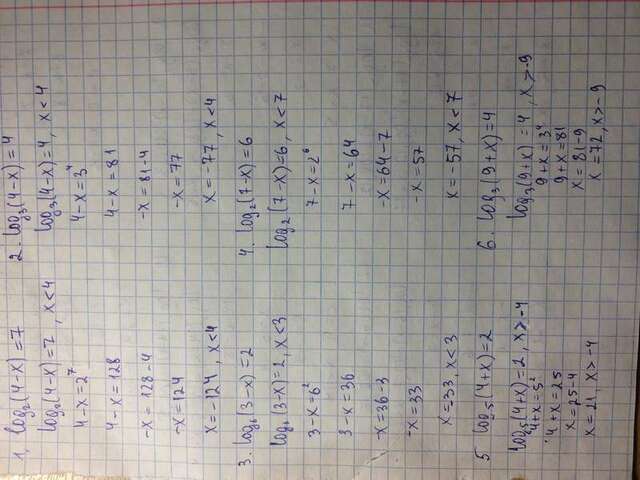 1. log₂(4-x)=7
log₂(4-x)=7, x<4
4-x=2⁷
4-x=128
-x=128-4
-x=124
x=-124, x<4
2. log₃(4-x)=4
log₃(4-x)=4, x<4
4-x=3⁴
4-x=81
-x=81-4
-x=77
x=-77, x<4
3. log₆(3-x)=2
log₆(3-x)=2, x<3
3-x=6²
3-x=36
-x=36-3
-x=33
x=-33, x<3
4. log₂(7-x)=6
log₂(7-x)=6, x<7
7-x=2⁶
7-x=64
-x=64-7
-x=57
x=-57, x<7
5 log₅(4+x)=2
log₅(4+x)=2, x>-4
4+x=5²
4+x=25
x=25-4
x=21, x>-4
6. log₃(9+x)=4
log₃(9+x)=4, x>-9
9+x=3⁴
9+x=81
x=81-9
x=72, x>-9